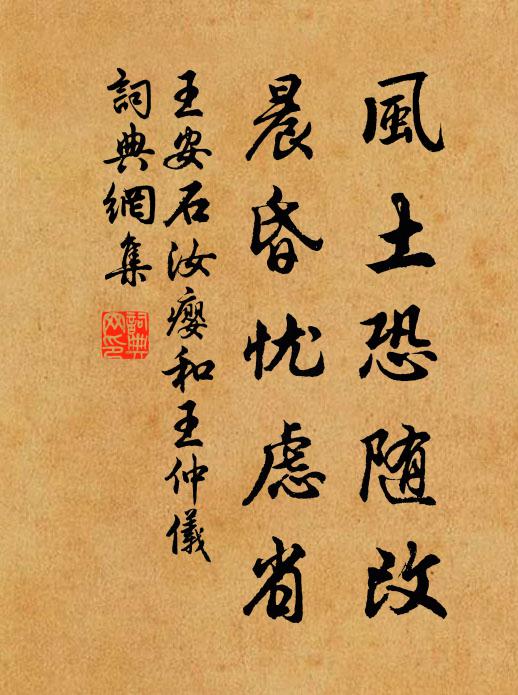 風土恐随改
晨昏忧虑省
王安石汝瘿和王仲儀
詞典網集
詞典
网印